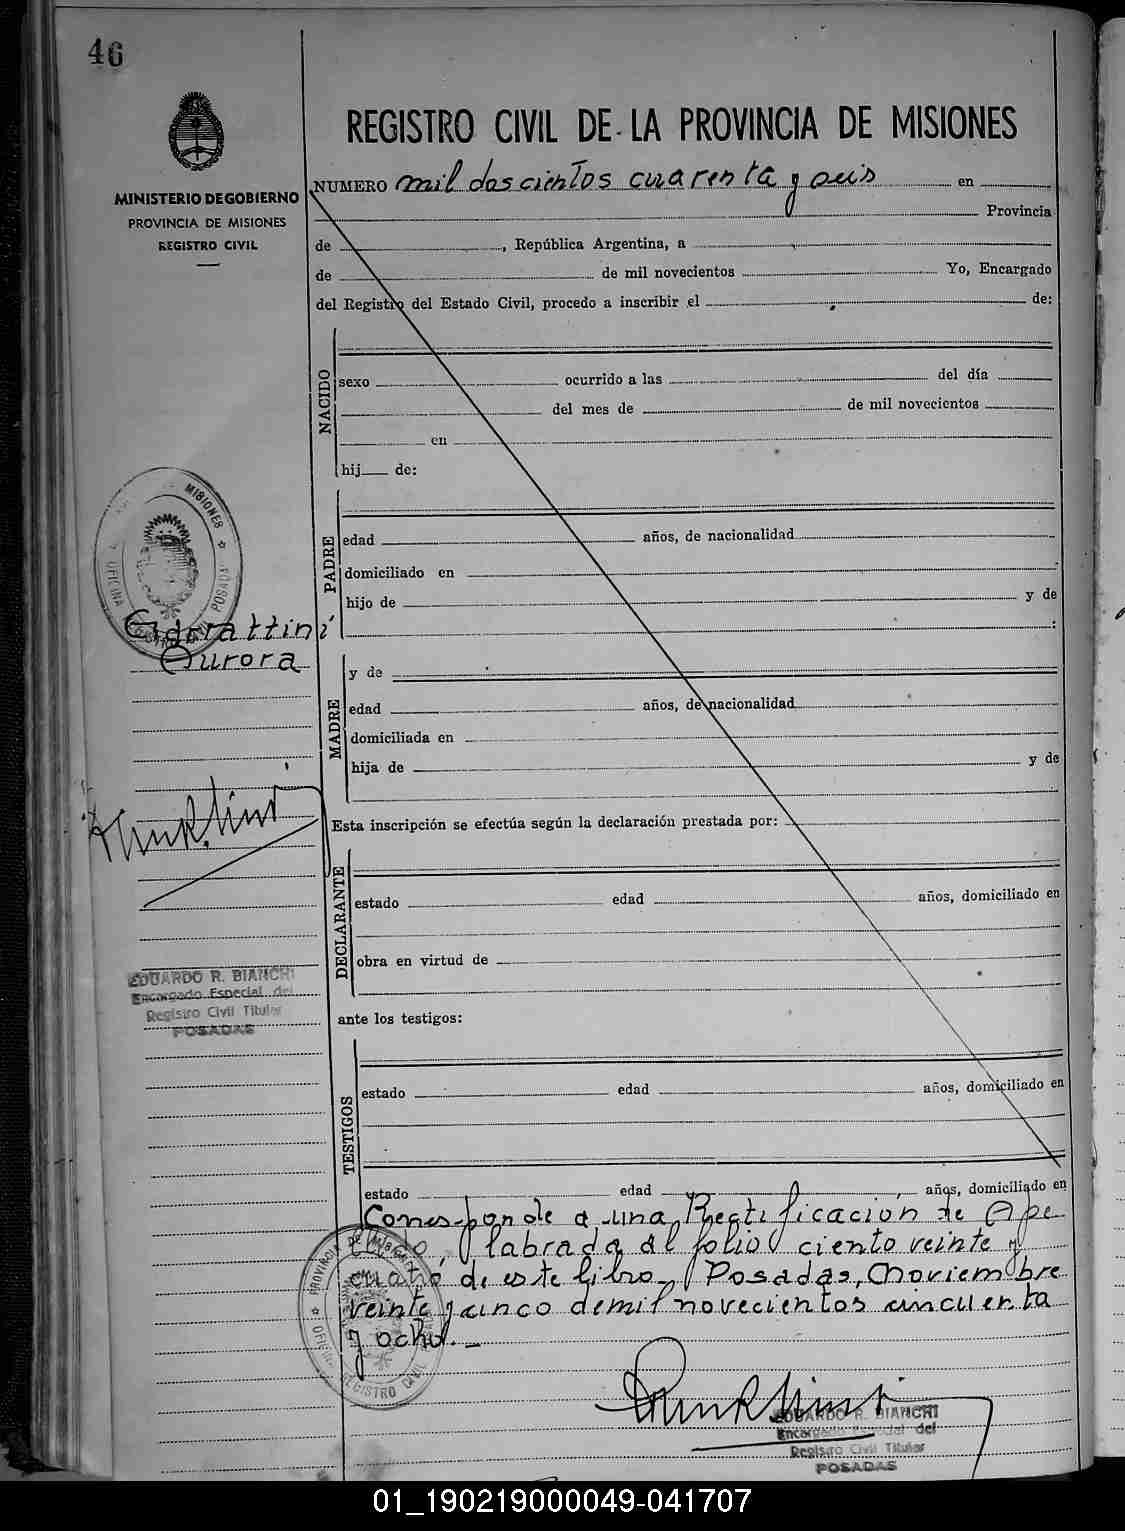 46
REGISTRO CIVIL DE LA PROVINCIA DE MISIONES
MINISTERIO DE GOBIERNO
PROVINCIA DE MISIONES
REGISTRO CIVIL
NUMERO mil doscientos cuarenta y seis en
Provincia
de , República Argentina, a
de de mil novecientos Yo, Encargado
del Registro del Estado Civil, procedo a inscribir el de:
NACIDO
sexo ocurrido a las del día
del mes de de mil novecientos
en
hij de:
PADRE
edad años, de nacionalidad
domiciliado en
hijo de y de
:
MISIONES
OFICINA POSADAS
Aurora
MADRE
y de
edad años, de nacionalidad
domiciliada en
hija de y de
Esta inscripción se efectúa según la declaración prestada por:
DECLARANTE
estado edad años, domiciliado en
obra en virtud de
EDUARDO R. BIANCHI
Encargado Especial del
Registro Civil Titular
POSADAS
ante los testigos:
TESTIGOS
estado edad años, domiciliado en
estado edad años, domiciliado en
Corresponde a una Rectificación de Ape
llido, labrada al folio ciento veinte y
cuatro de este libro, Posadas, Noviembre
veinte y cinco de mil novecientos cincuenta
y ocho.-
PROVINCIA DE MISIONES
REGISTRO CIVIL
EDUARDO R. BIANCHI
Encargado Especial del
Registro Civil Titular
POSADAS
01_190219000049-041707